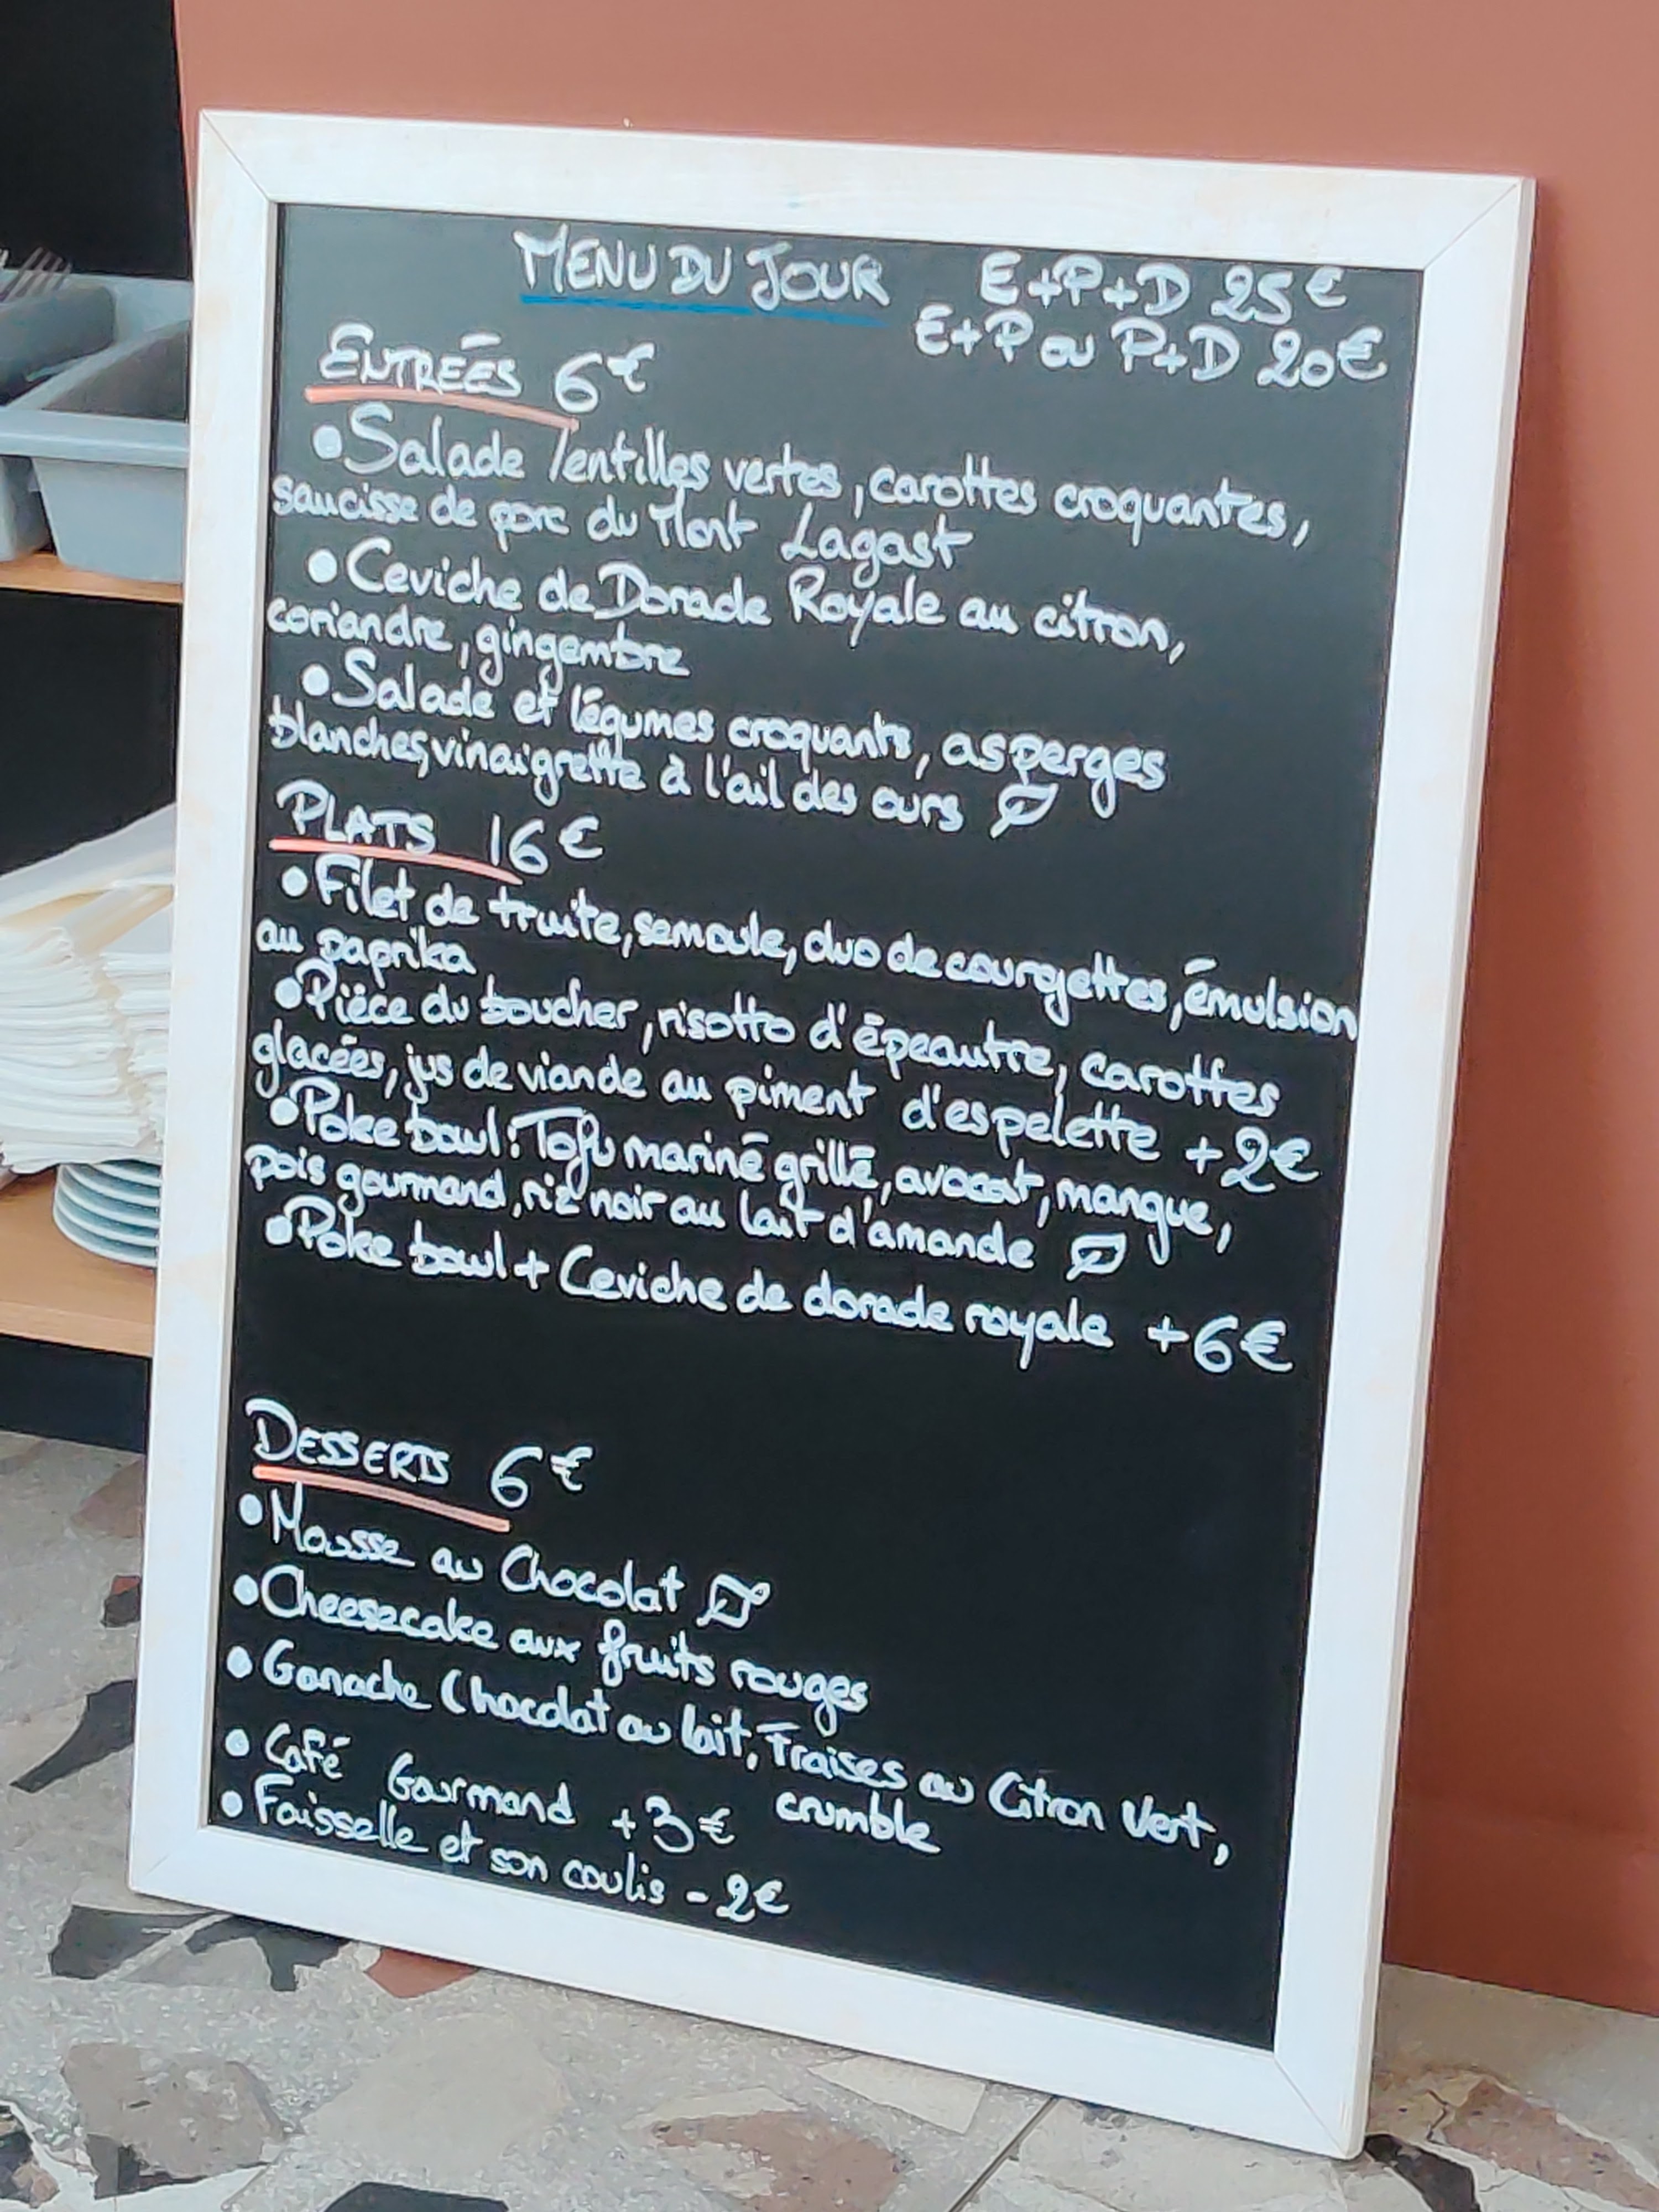 MENU DU JOUR
E+P+D 25€
E+P ou P+D 20€
ENTRÉES 6€
•Salade lentilles vertes, carottes croquantes,
saucisse de porc du Mont Lagast
•Ceviche de Dorade Royale au citron,
coriandre, gingembre
•Salade et légumes croquants, asperges
blanches, vinaigrette à l'ail des ours
PLATS 16€
•Filet de truite, semoule, duo de courgettes, émulsion
au paprika
•Pièce du boucher, risotto d'épeautre, carottes
glacées, jus de viande au piment d'espelette +2€
•Poke bowl: Tofu mariné grillé, avocat, mangue,
pois gourmand, riz noir au lait d'amande
•Poke bowl + Ceviche de dorade royale +6€
DESSERTS 6€
•Mousse au Chocolat
•Cheesecake aux fruits rouges
•Ganache Chocolat au lait, Fraises au Citron Vert,
crumble
•Café Gourmand +3€
•Faisselle et son coulis -2€